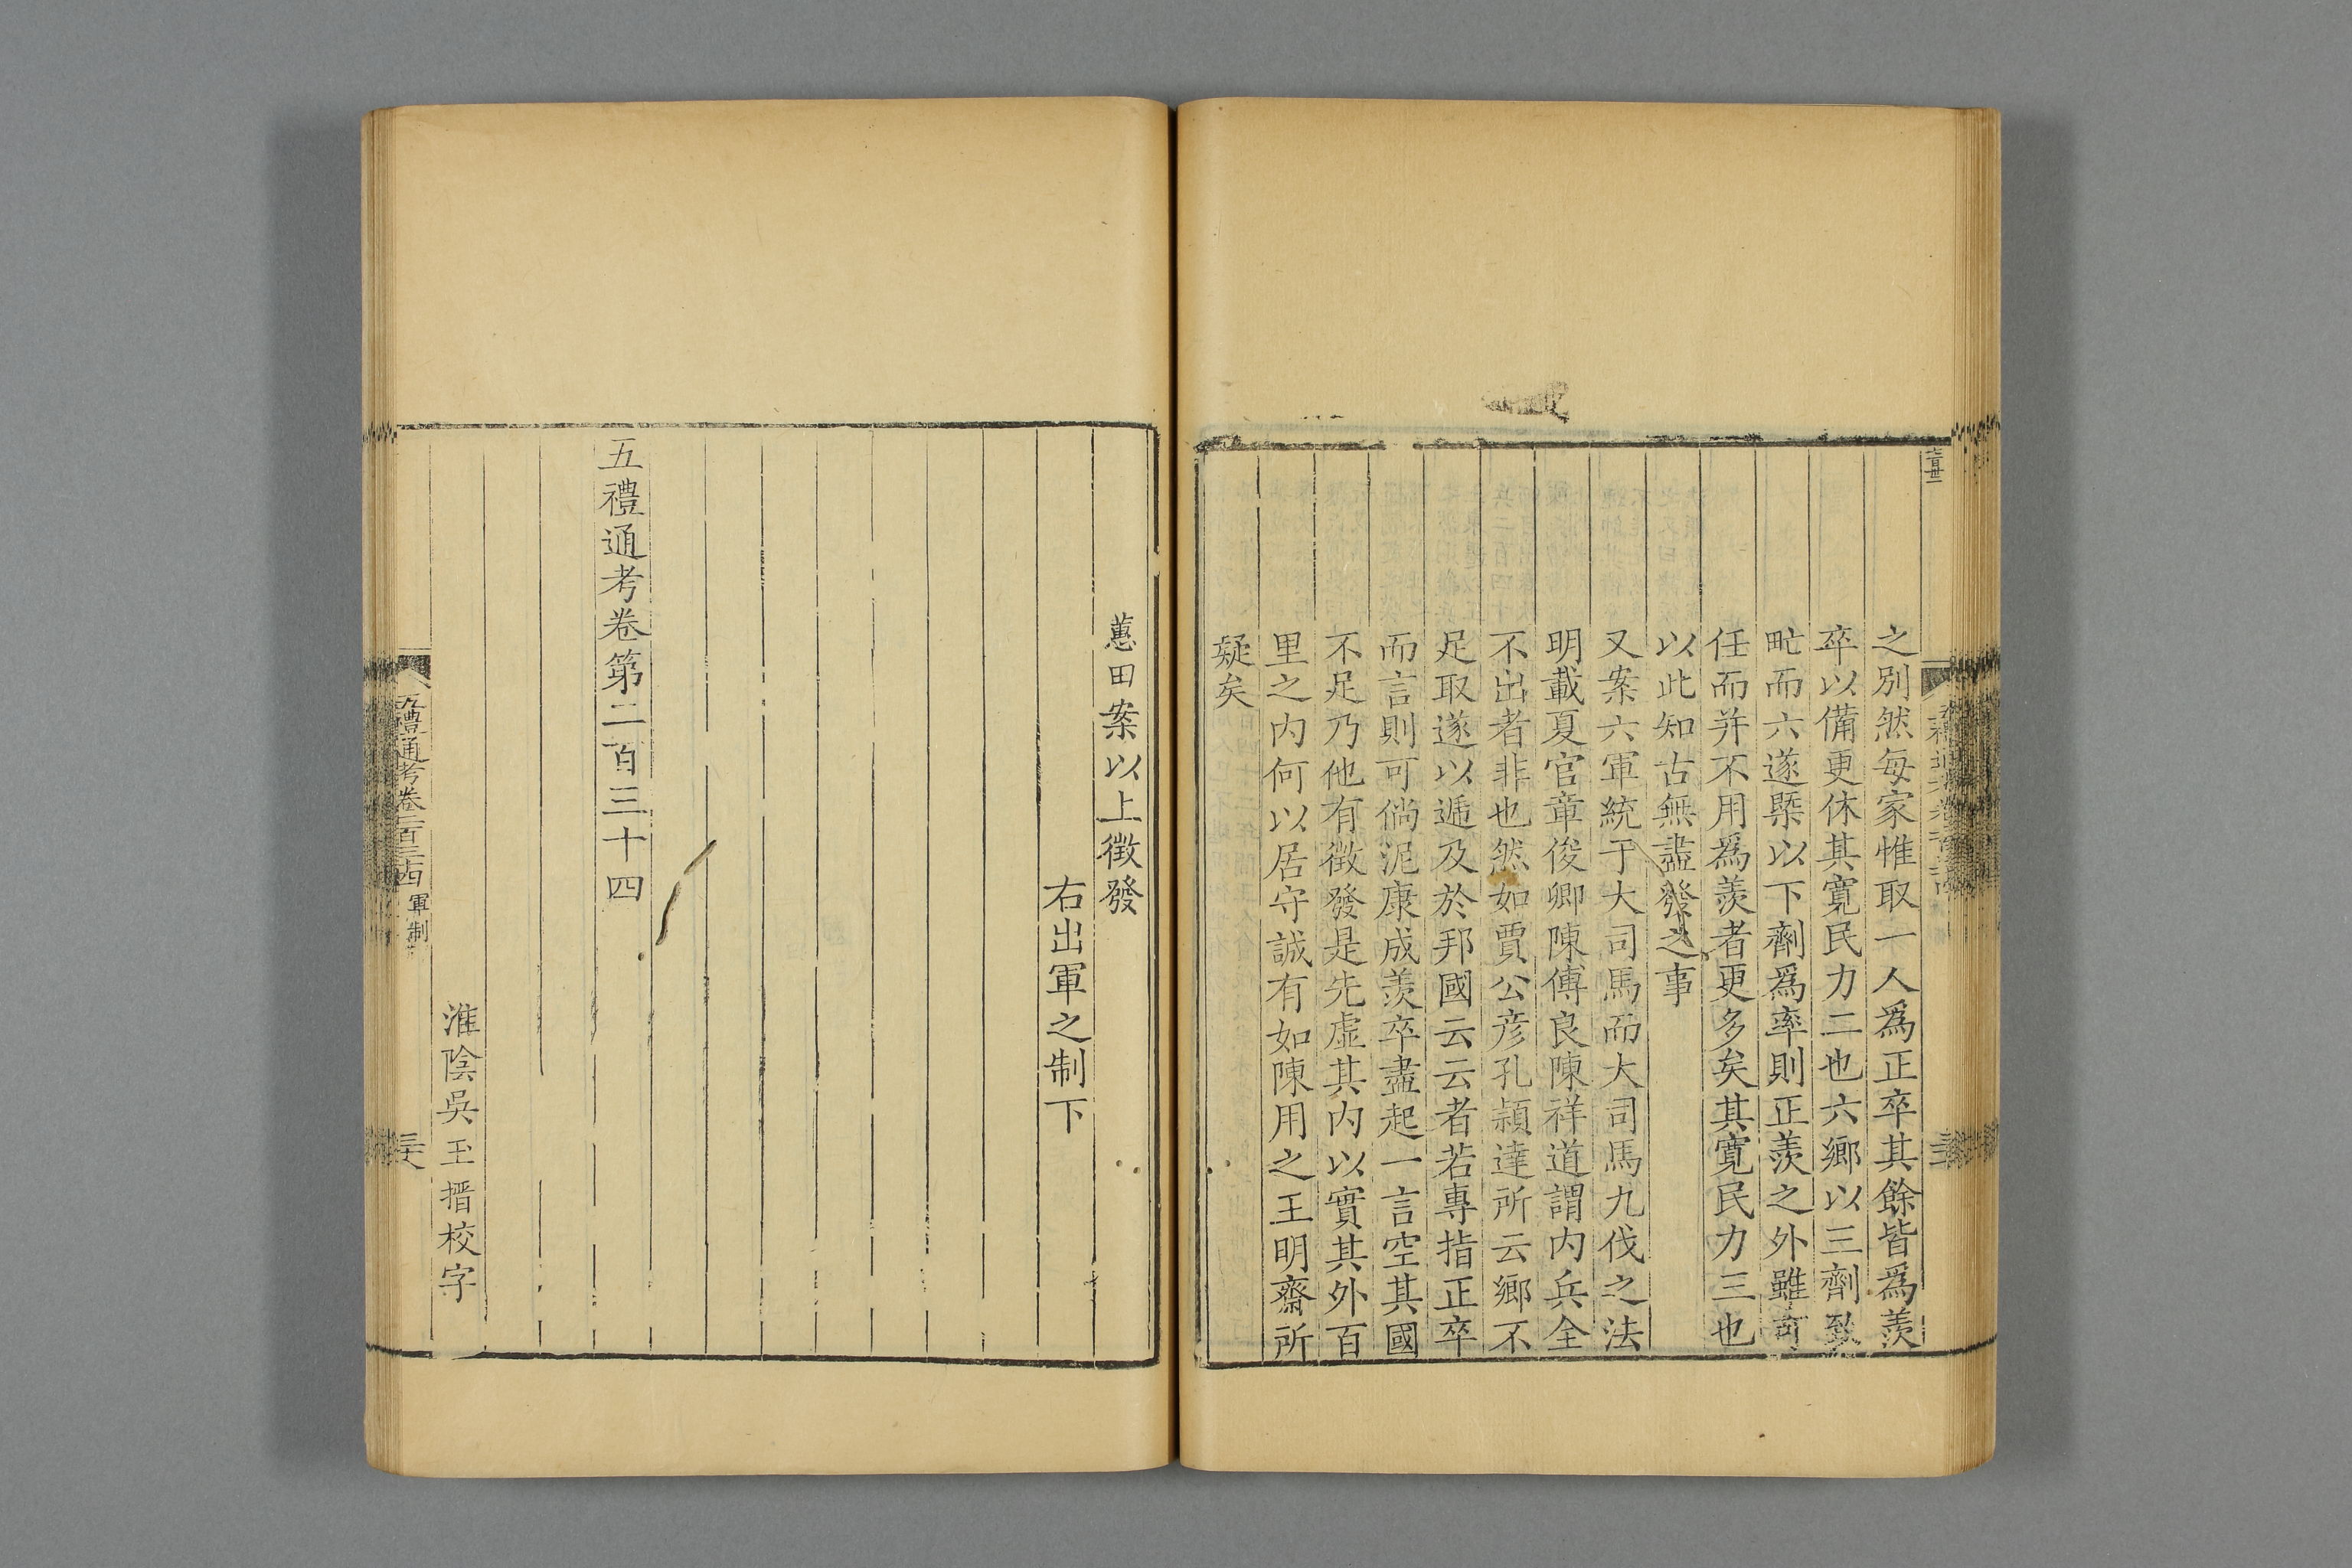 之別然每家惟取一人爲正卒其餘皆爲羨
卒以備更休其寛民力二也六鄉以三劑致
甿而六遂槩以下劑爲率則正羨之外雖可
任而并不用爲羨者更多矣其寛民力三也
以此知古無盡發之事
又案六軍統于大司馬而大司馬九伐之法
明載夏官章俊卿陳傅良陳祥道謂内兵全
不出者非也然如賈公彦孔穎達所云鄉不
足取遂以遞及於邦國云云者若專指正卒
而言則可倘泥康成羨卒盡起一言空其國
不足乃他有徴發是先虛其内以實其外百
里之内何以居守誠有如陳用之王明齋所
疑矣
蕙田案以上徴發
右出軍之制下
五禮通考卷第二百三十四
淮陰吳玉搢校字
五禮通考卷二百三十四 軍制